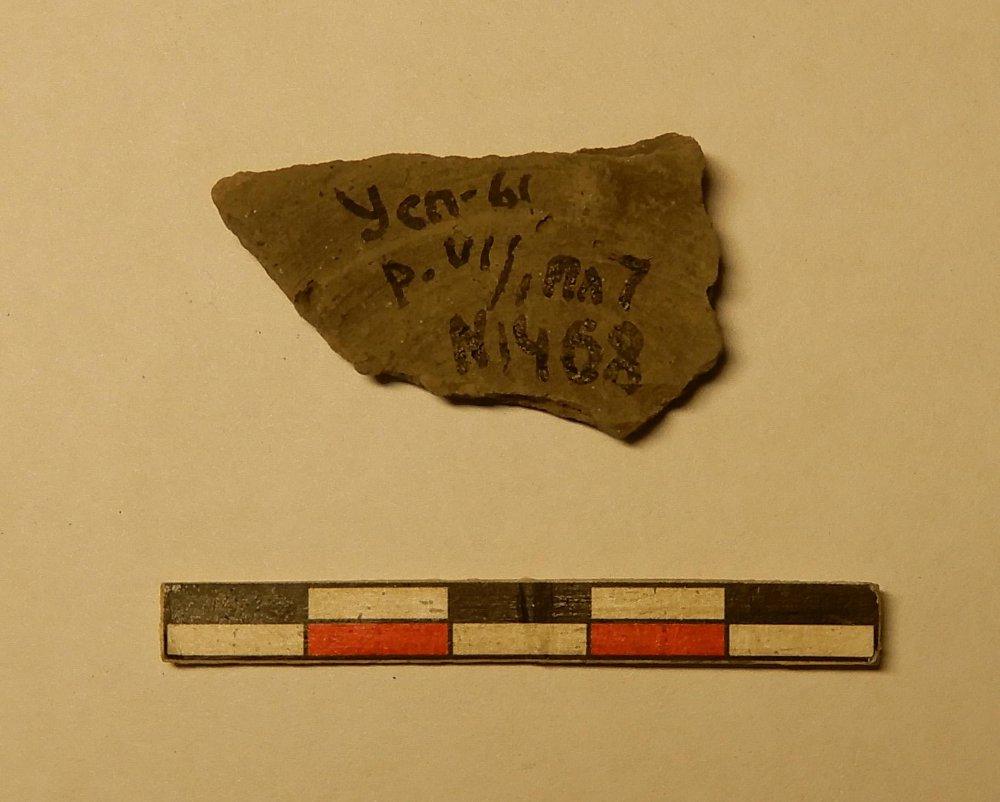 Усп-61
р. VII, пл 7
N1468